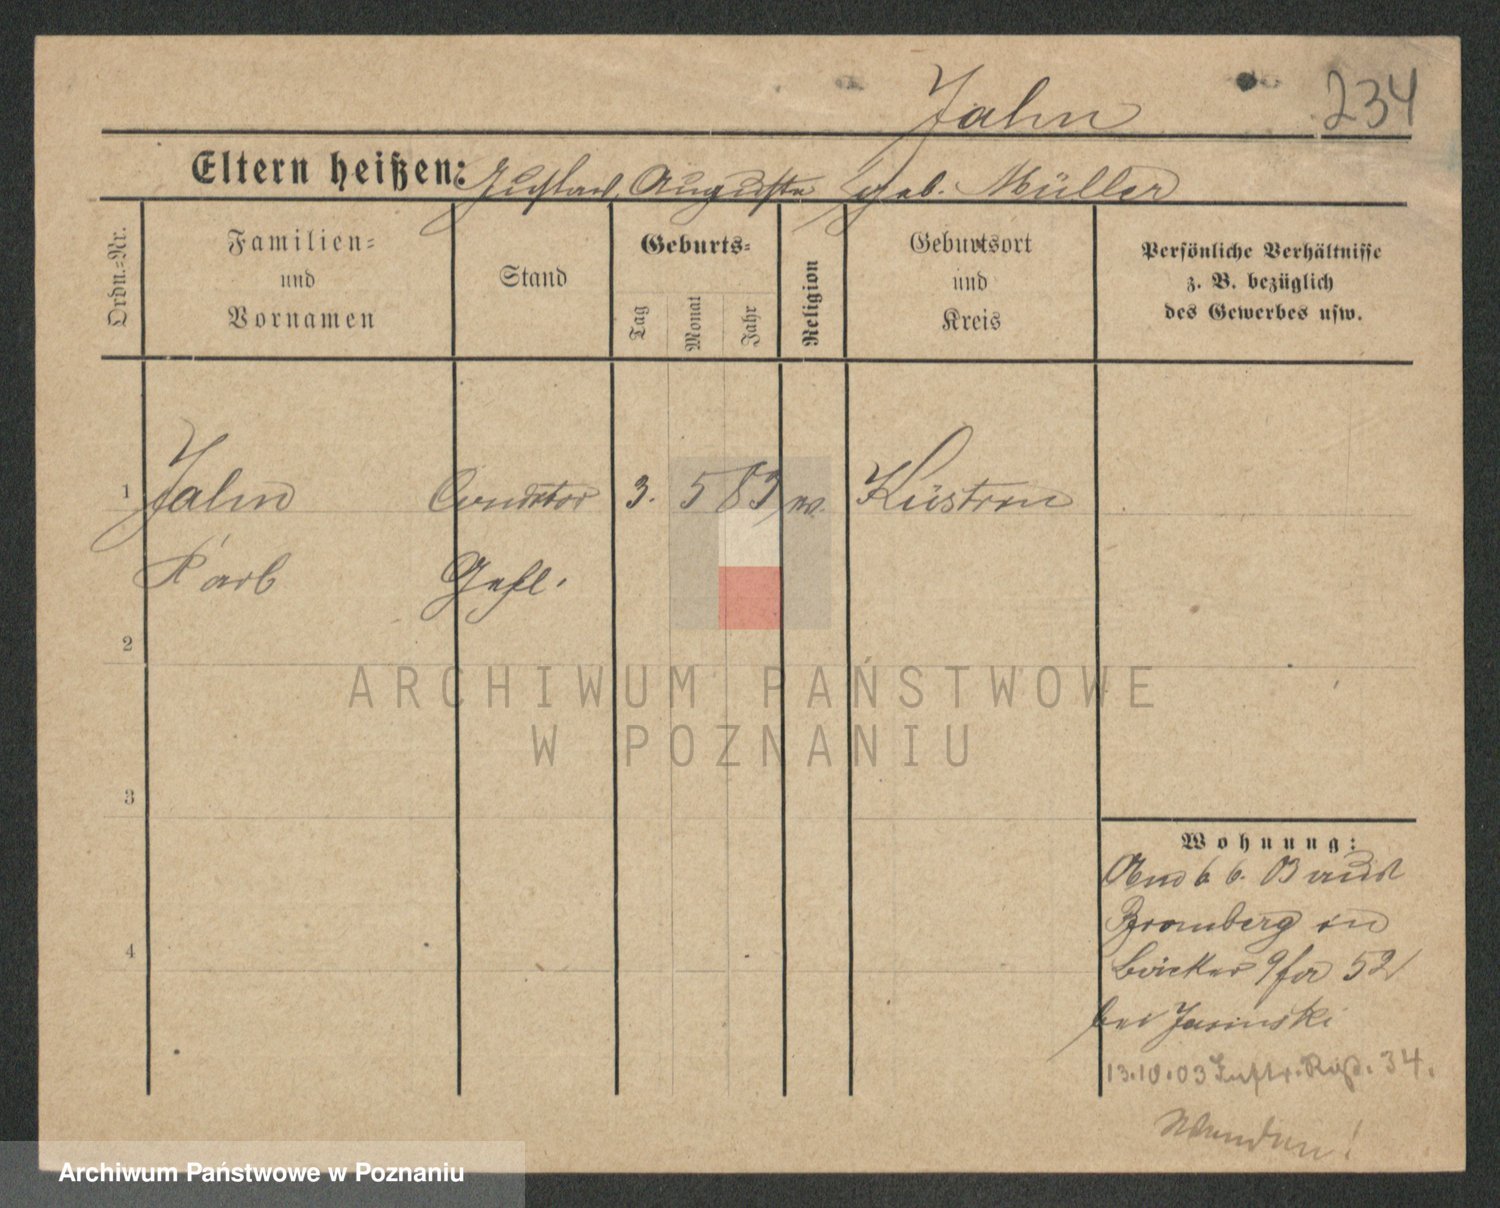 Jahn 234
Eltern heißen: Gustav, Auguste geb. Müller
Ordn.-Nr.
Familien-
und
Vornamen
Stand
Geburts-
Tag
Monat
Jahr
Religion
Geburtsort
und
Kreis
Persönliche Verhältnisse
z. B. bezüglich
des Gewerbes usw.
1 Jahn Conditor 3. 5 83 ev. Küstrin
Gehl.
2
ARCHIWUM PAŃSTWOWE
W POZNANIU
3
4
Wohnung:
6 6.
Bromberg in
52
bei Jasinski
13.10.03 34.
Wenden!
Archiwum Państwowe w Poznaniu